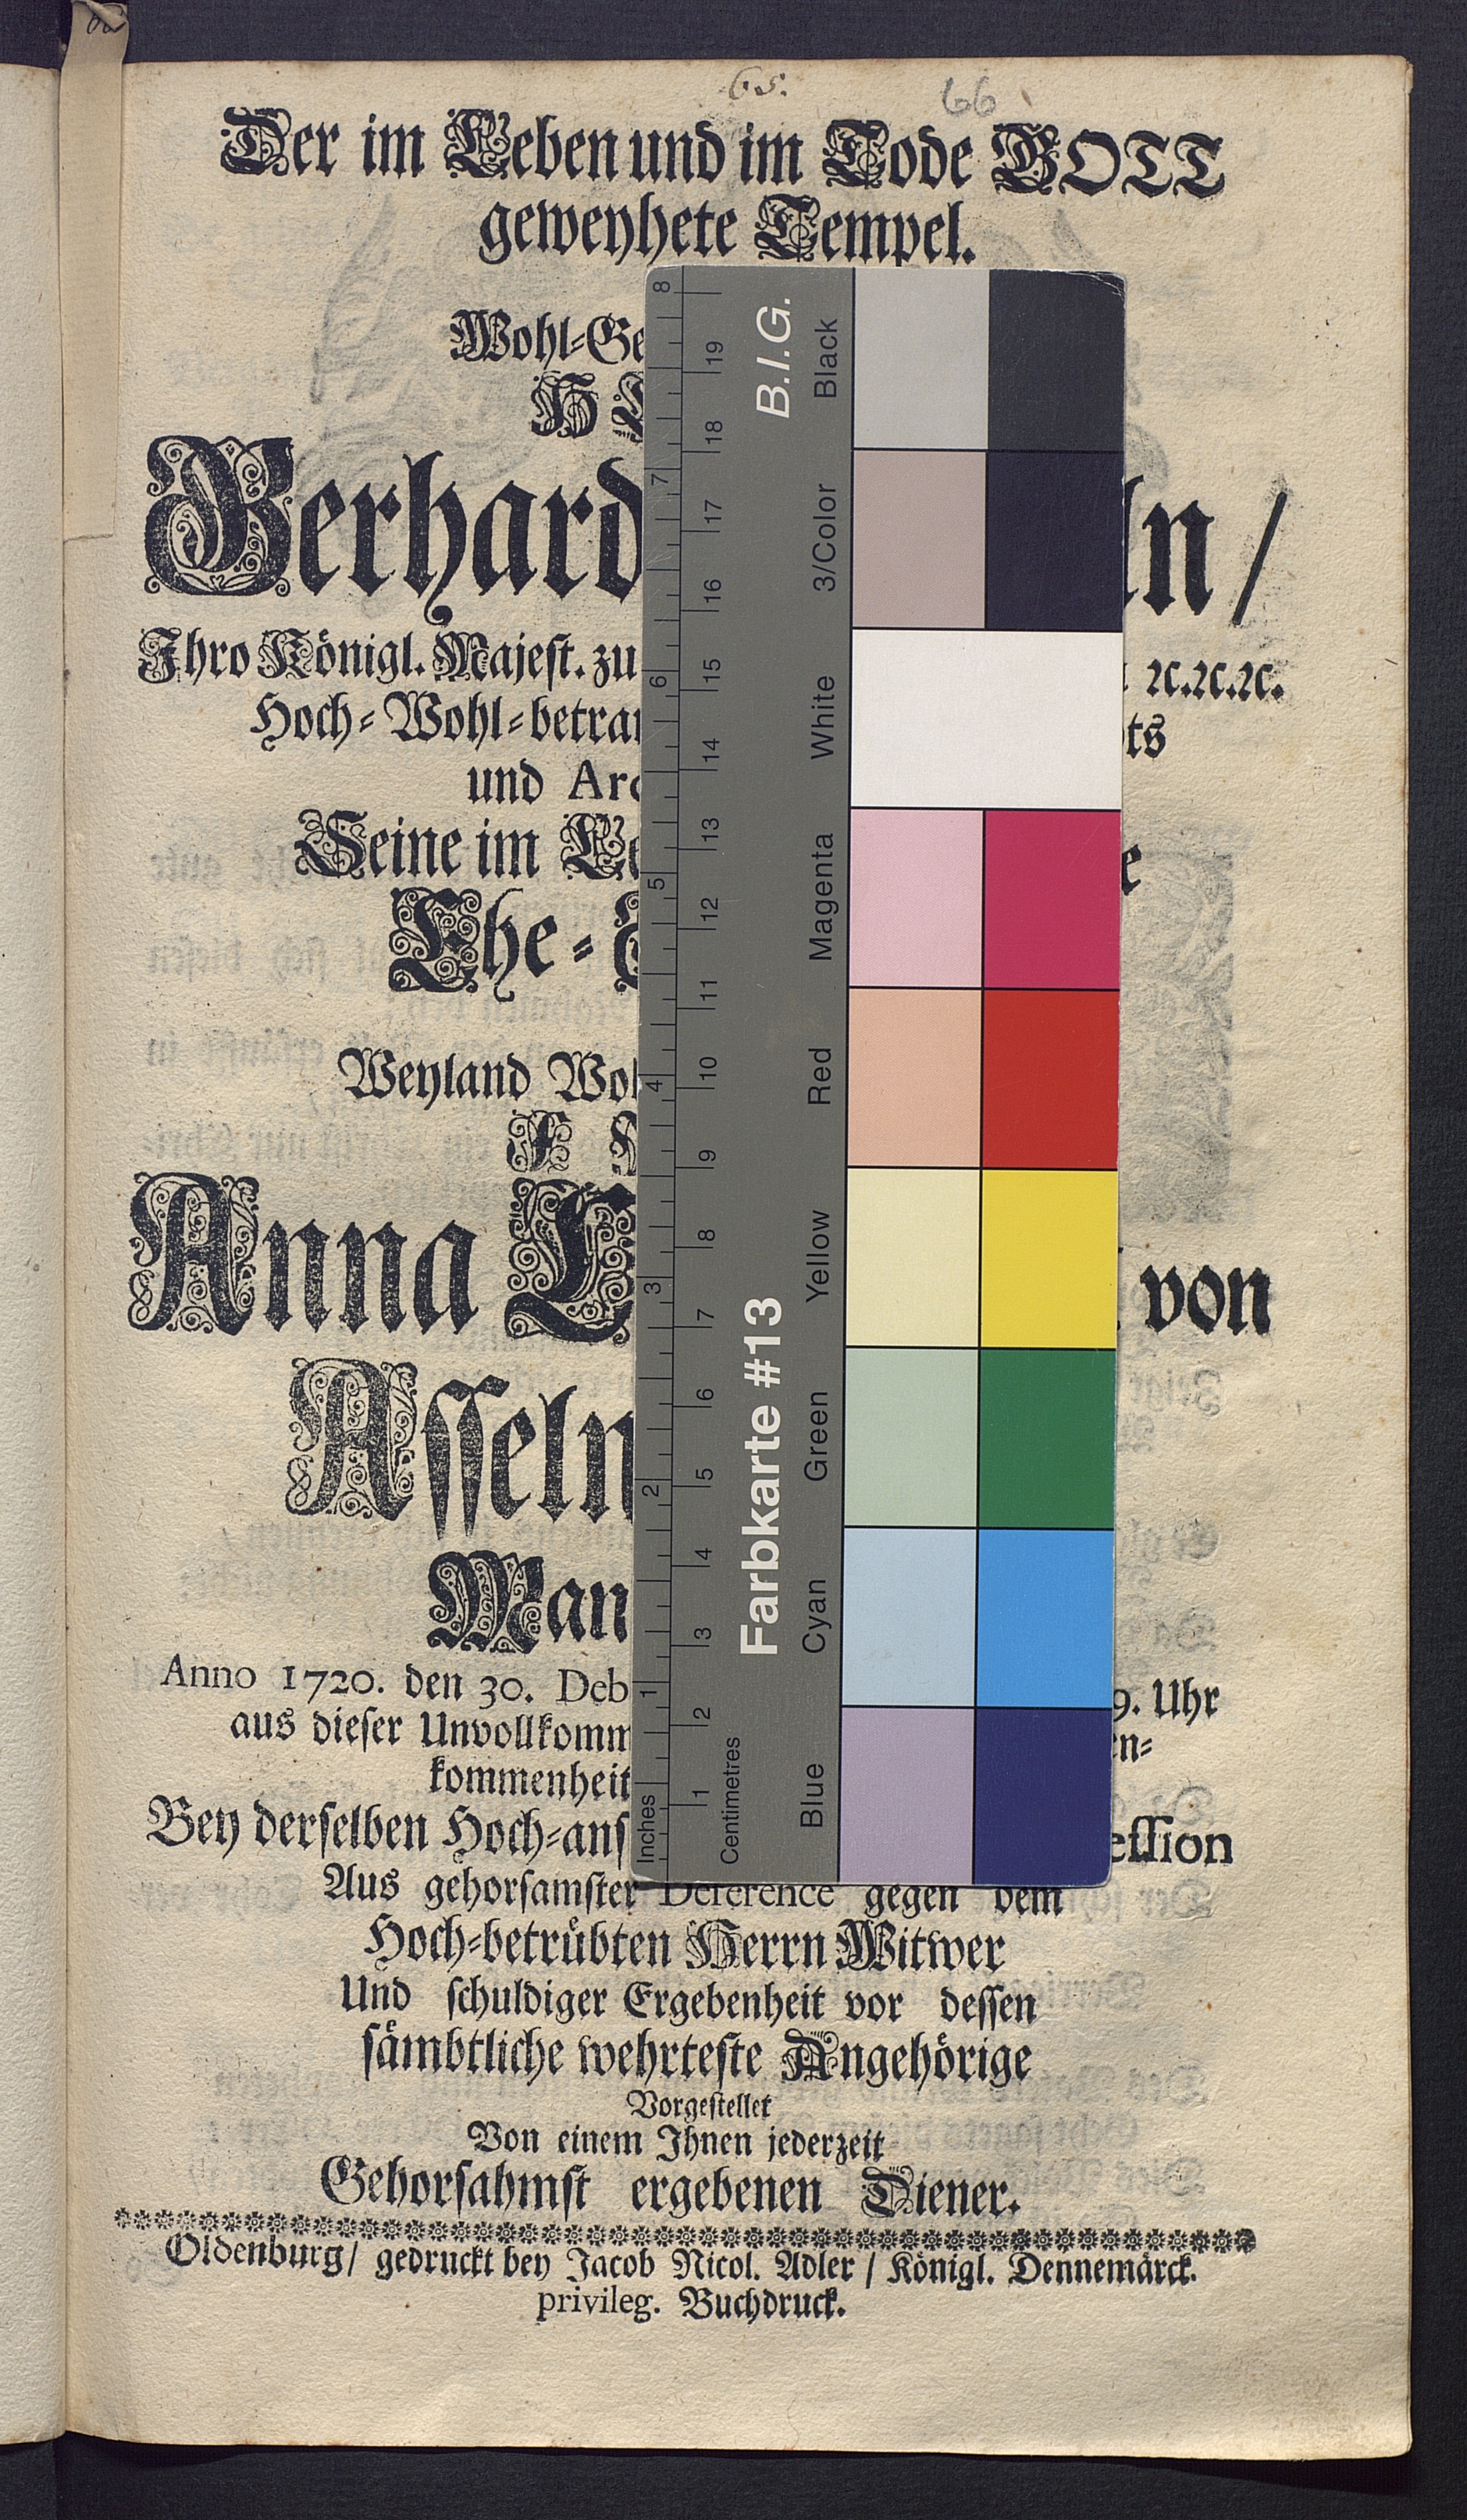 65. 66
Der im Leben und im Tode GOTT
geweyhete Tempel.
Wohl-Ge
H
Gerhard ln /
Ihro Königl. Majest. zu ꝛc.ꝛc.ꝛc.
Hoch-Wohl-betrau ts
und Arc
Seine im Le e
Ehe-
Weyland Woh
F
Anna C von
Asseln
Man
Anno 1720. den 30. Deb 9. Uhr
aus dieser Unvollkomm en-
kommenheit
Bey derselben Hoch-ans ession
Aus gehorsamster Deference gegen dem
Hoch-betrübten Herrn Witwer
Und schuldiger Ergebenheit vor dessen
sämbtliche wehrteste Angehörige
Vorgestellet
Von einem Ihnen jederzeit
Gehorsahmst ergebenen Diener.
Oldenburg/ gedruckt bey Jacob Nicol. Adler / Königl. Dennemärck.
privileg. Buchdruck.
Inches 1 2 3 4 5 6 7 8
Centimetres 1 2 3 4 5 6 7 8 9 10 11 12 13 14 15 16 17 18 19
Farbkarte #13 B.I.G.
Blue Cyan Green Yellow Red Magenta White 3/Color Black